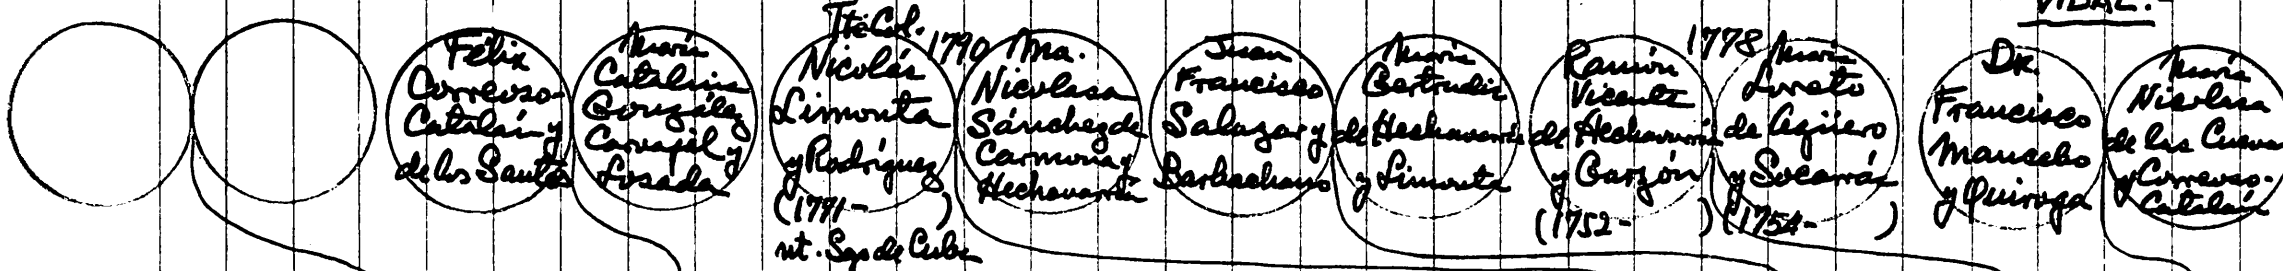 VIDAL.-
Félix
Correoso-
Catalán y
de los Santos
María
Catalina
González
Carvajal y
Losada
Tte Col.
Nicolás
Limonta
y Rodríguez
(1791- )
nt. Sgo de Cuba
1790
Ma.
Nicolasa
Sánchez de
Carmona y
Hechavarría
Juan
Francisco
Salazar y
Barbachano
María
Gertrudis
de Hechavarría
y Limonta
Ramón
Vicente
de Hechavarría
y Garzón
(1752- )
1778
María
Loreto
de Agüero
y Socarrás
(1754- )
Dr.
Francisco
Mancebo
y Quiroga
María
Nicolasa
de las Cuevas
y Correoso-
Catalán